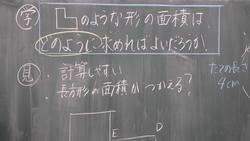 学 のような形の面積は、
どのように求めればよいだろうか。
見 ・計算しやすい
・長方形の面積がつかえる?
たての長さ
4cm
E
D